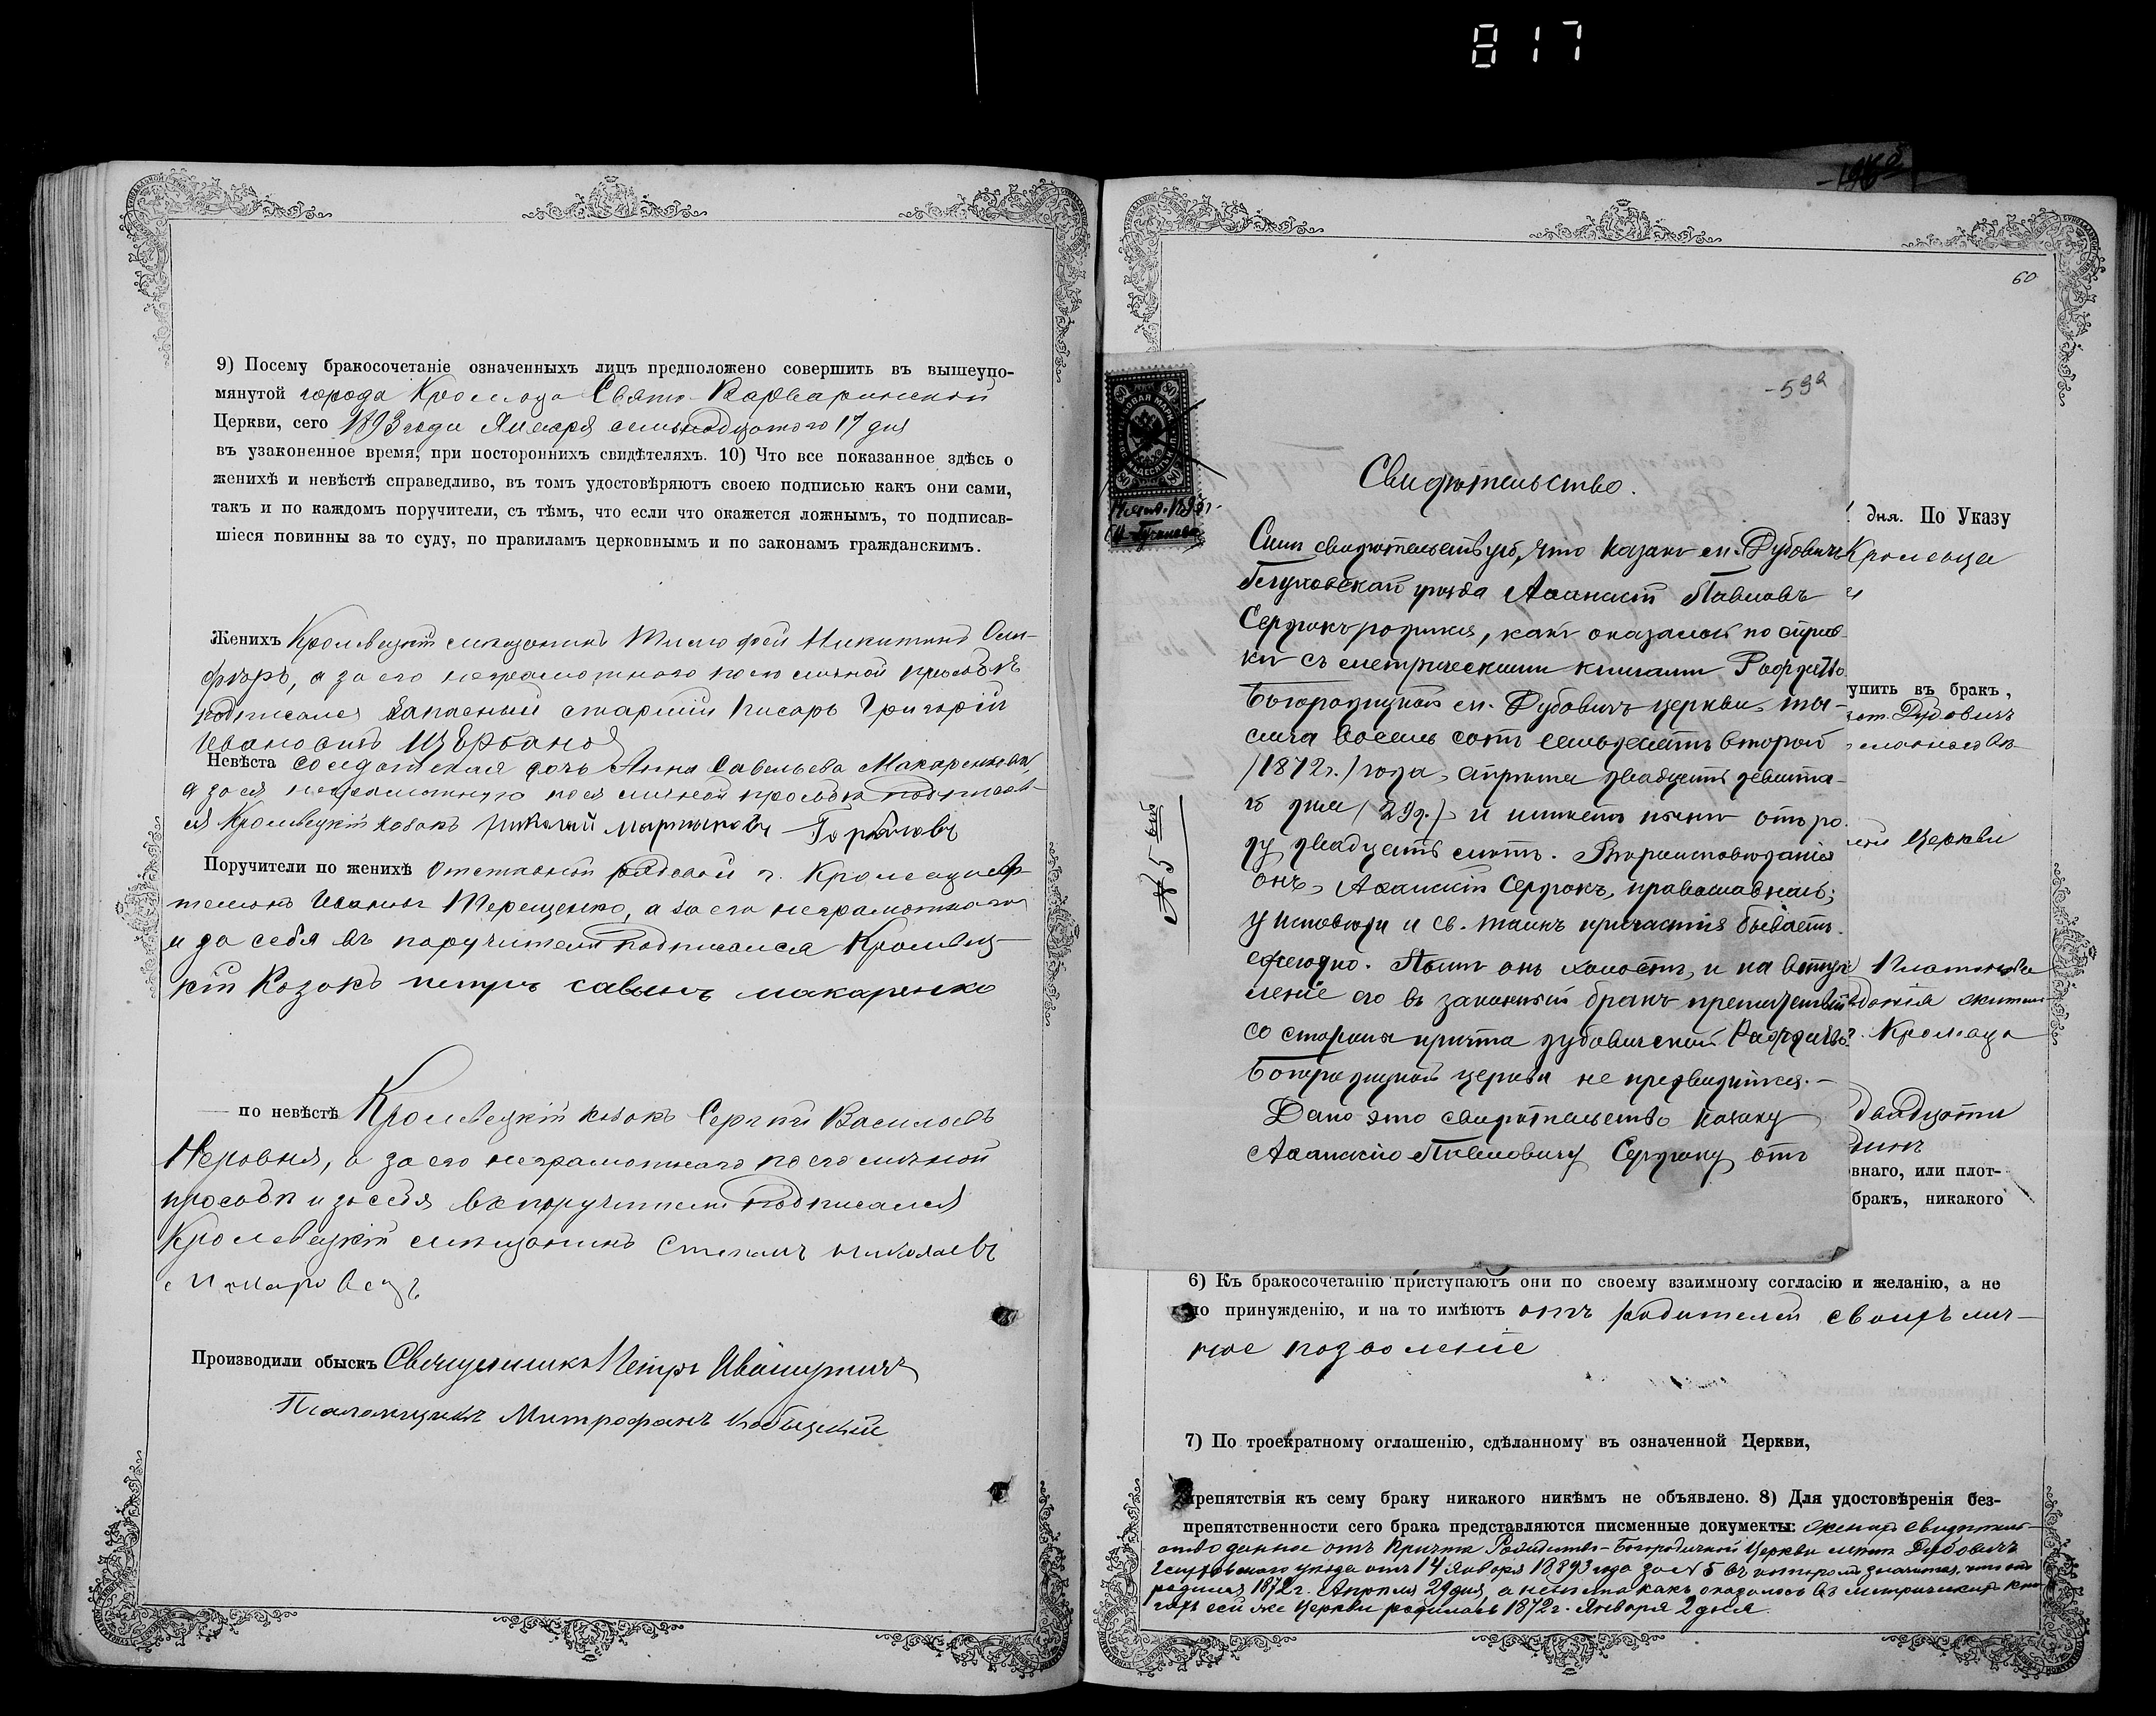 817
9) Посему бракосочетаніе означенныхъ лицъ предположено совершить въ вышеупо-
мянутой города Кролевца Свято-Варваринской
Церкви, сего 1893 года Января семнадцатого 17 дня
въ узаконенное время, при постороннихъ свидѣтеляхъ. 10) Что все показанное здѣсь о
женихѣ и невѣстѣ справедливо, въ томъ удостовѣряютъ своею подписью какъ они сами,
такъ и по каждомъ поручители, съ тѣмъ, что если что окажется ложнымъ, то подписав-
шіеся повинны за то суду, по правиламъ церковнымъ и по законамъ гражданскимъ.
Женихъ Кролевецкій мѣщанинъ Тимофей Никитинъ
а за его неграмотного по его личной просьбѣ
подписался запасный старшій писарь Григорій
Ивановичъ
Невѣста солдатская дочь Анна Савельева Макаренкова,
а за ея неграмотную по ея личной просьбѣ подписал-
ся Кролевецкій козакъ Николай Мартыновъ
Поручители по женихѣ отставной рядовой г. Кролевца
Иванъ Терещенко, а за его неграмотного
и за себя въ поручители подписался Кролевец-
кій Козакъ петръ савинъ макаренко
по невѣстѣ Кролевецкій козакъ Сергѣй Василіевъ
Неровня, а за его неграмотнаго по его личной
просьбѣ и за себя въ поручители подписался
Кролевецкій мѣщанинъ Степанъ николаевъ
Производили обыскъ Священникъ Петръ
Псаломщикъ Митрофанъ
60
-59а
№ 5-ый
Свидѣтельство.
Симъ свидѣтельствую, что казакъ м. Дубовичъ
Глуховскаго уѣзда Аѳанасій Павловъ
Сердюкъ родился, какъ оказалось по справ-
кѣ съ метрическими книгами Рождество-
Богородицкой м. Дубовичъ церкви, ты-
сяча восемь сотъ семьдесятъ второй
/1872 г./ года, апрѣля двадцать девята-
го дня (29 д.) и имѣетъ нынѣ отъ ро-
ду двадцать лѣтъ. Вѣроисповѣданія
онъ, Аѳанасій Сердюкъ, православнаго;
у исповѣди и св. таинъ причастія бываетъ
ежегодно. онъ холостъ, и на вступ-
леніе его въ законный бракъ препятствій
со стороны причта дубовичской Рождество-
Богородицкой церкви не предвидится.-
Дано это свидѣтельство казаку
Аѳанасію Павловичу Сердюку отъ
дня. По Указу
Кролевца
упить въ бракъ,
Дубовичъ
церкви
Кролевца
двадцати
овнаго, или плот-
бракъ, никакого
6) Къ бракосочетанію приступаютъ они по своему взаимному согласію и желанію, а не
по принужденію, и на то имѣютъ отъ родителей своихъ лич-
ное позволеніе
7) По троекратному оглашенію, сдѣланному въ означенной Церкви,
препятствія къ сему браку никакого никѣмъ не объявлено. 8) Для удостовѣренія без-
препятственности сего брака представляются писменные документы: жениха свидѣтель-
ство данное отъ Причта Рождество-Богородичной Церкви мѣст. Дубовичъ
Глуховского уѣзда отъ 14 Января 1893 года за № 5 въ которомъ значится, что онъ
родился 1872 г. Апрѣля 29 дня, а невѣста какъ оказалось въ метрическихъ кни-
гахъ сей же Церкви родилась 1872 г. Января 2 дня